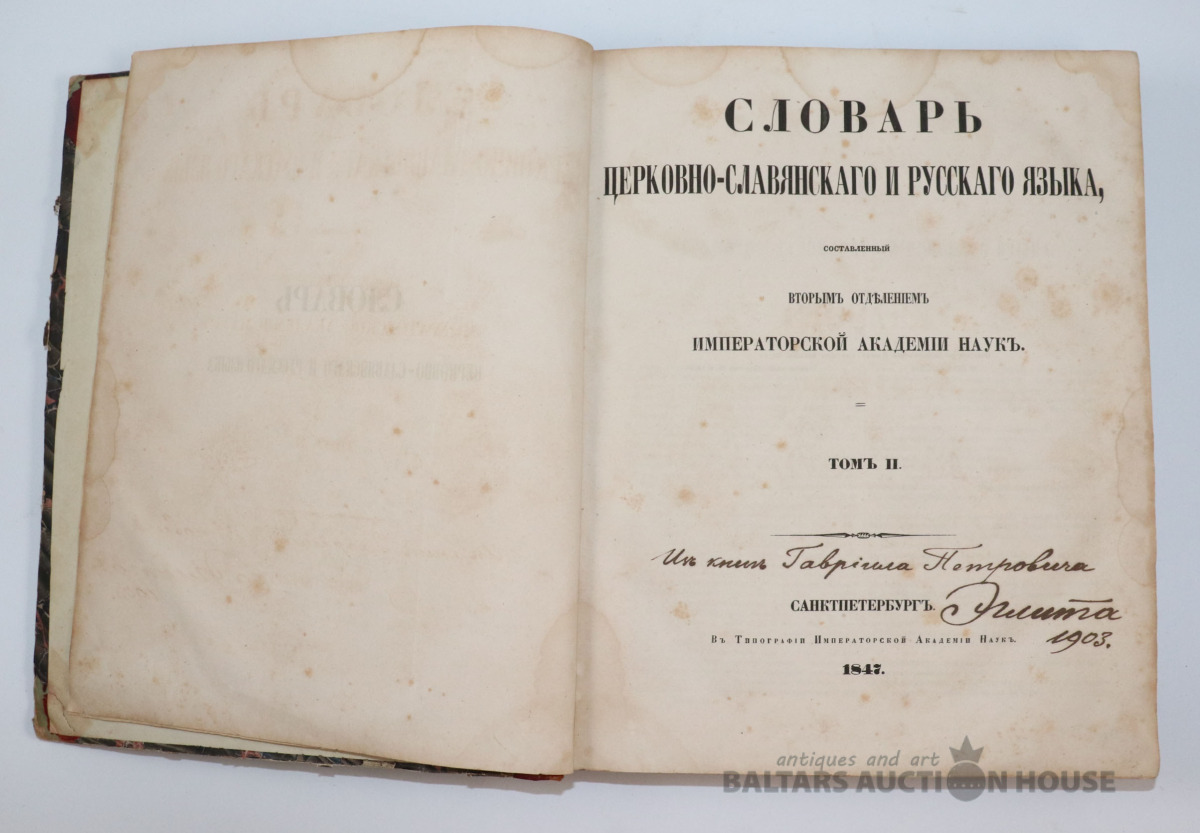 СЛОВАРЬ
ЦЕРКОВНО-СЛАВЯНСКАГО И РУССКАГО ЯЗЫКА,
СОСТАВЛЕННЫЙ
ВТОРЫМЪ ОТДѢЛЕНІЕМЪ
ИМПЕРАТОРСКОЙ АКАДЕМІИ НАУКЪ.
ТОМЪ II.
Изъ книгъ Гавріила Петровича
САНКТПЕТЕРБУРГЪ. Эглита
ВЪ ТИПОГРАФІИ ИМПЕРАТОРСКОЙ АКАДЕМІИ НАУКЪ. 1903.
1847.
antiques and art
BALTARS AUCTION HOUSE